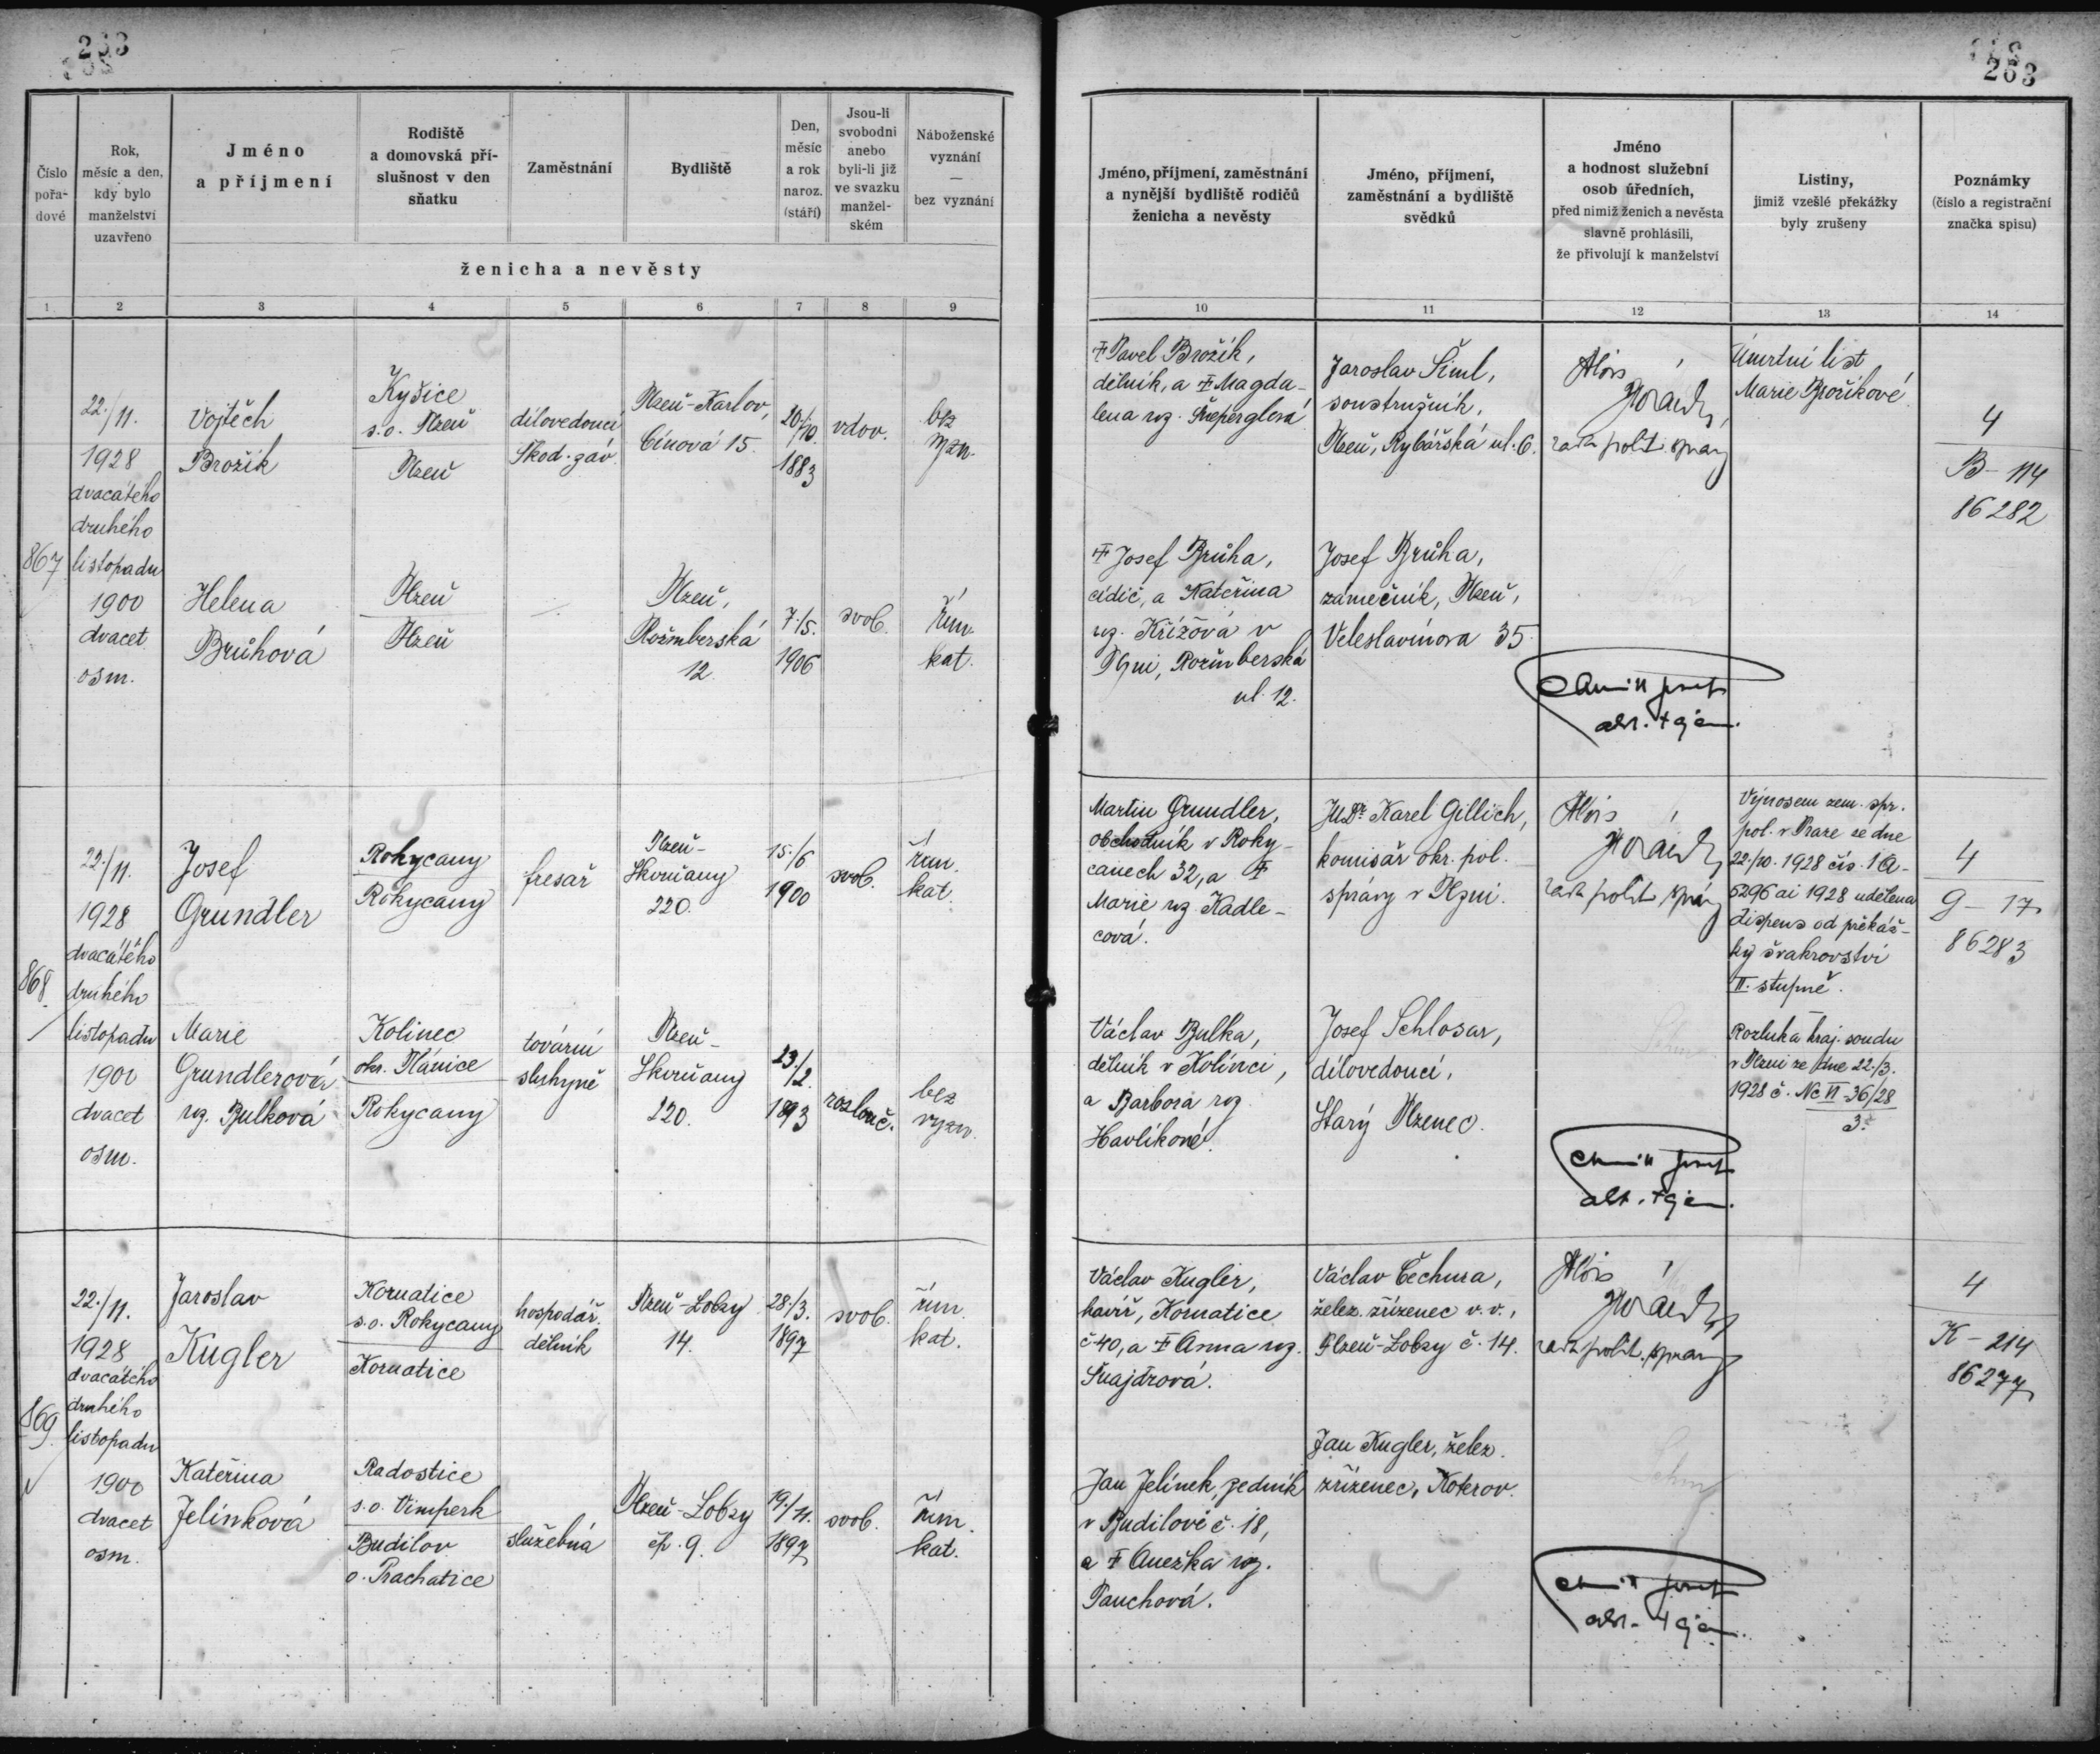 263
263
Číslo pořadové
Rok, měsíc a den, kdy bylo manželství uzavřeno
Jméno a příjmení
Rodiště a domovská příslušnost v den sňatku
Zaměstnání
Bydliště
Den, měsíc a rok naroz. (stáří)
Jsou-li svobodni anebo byli-li již ve svazku manželském
Náboženské vyznání — bez vyznání
ženicha a nevěsty
Jméno, příjmení, zaměstnání a nynější bydliště rodičů ženicha a nevěsty
Jméno, příjmení, zaměstnání a bydliště svědků
Jméno a hodnost služební osob úředních, před nimiž ženich a nevěsta slavně prohlásili, že přivolují k manželství
Listiny, jimiž vzešlé překážky byly zrušeny
Poznámky (číslo a registrační značka spisu)
1 2 3 4 5 6 7 8 9 10 11 12 13 14
867
22./11.
1928
dvacátého
druhého
listopadu
1900
dvacet
osm.
Vojtěch
Brožík
Kyšice
s.o. Plzeň
Plzeň
dílovedoucí
Škod. záv.
Plzeň-Karlov,
Cínová 15.
20/10.
1883
vdov.
bez
vyzn.
† Pavel Brožík,
dělník, a † Magda-
lena roz.
Jaroslav Šiml,
soustružník,
Plzeň, Rybářská ul. 6.
Alois
rada polit. správy
Úmrtní list
Marie Brožíkové
4
B - 114
86282
Helena
Brůhová
Plzeň
Plzeň
Plzeň,
Rožmberská
12.
7./5.
1906
svob.
řím.
kat.
† Josef Brůha,
cídič, a Kateřina
roz. Křížová v
Plzni, Rožmberská
ul. 12.
Josef Brůha,
zámečník, Plzeň,
Veleslavínova 35.
868
22./11.
1928
dvacátého
druhého
listopadu
1900
dvacet
osm.
Josef
Grundler
Rokycany
Rokycany
fresař
Plzeň-
Skvrňany
220.
15./6
1900
svob.
řím.
kat.
Martin Grundler,
obchodník v Roky-
canech 32, a †
Marie roz. Kadle-
cová.
JUDr. Karel Gillich,
komisář okr. pol.
správy v Plzni.
Alois
rada polit. správy
Výnosem zem. spr.
pol. v Praze ze dne
22./10. 1928 čís. 1A-
6296 ai 1928 udělena
dispens od překáž-
ky švakrovství
II. stupně.
4
G - 17
86283
Marie
Grundlerová
roz. Bulková
Kolinec
okr. Plánice
Rokycany
tovární
sluhyně
Plzeň-
Skvrňany
220.
23./2.
1893
rozlouč.
bez
vyzn.
Václav Bulka,
dělník v Kolinci,
a Barbora roz.
Havlíkové.
Josef Schlosar,
dílovedoucí,
Starý Plzenec.
Rozluka kraj. soudu
v Plzni ze dne 22./3.
1928 č. Nc VI -36/28
3.
869
22./11.
1928
dvacátého
druhého
listopadu
1900
dvacet
osm.
Jaroslav
Kugler
Kornatice
s.o. Rokycany
Kornatice
hospodář.
dělník
Plzeň-Lobzy
14.
28./3.
1897
svob.
řím.
kat.
Václav Kugler,
havíř, Kornatice
č 40, a † Anna roz.
Šnajdrová.
Václav Čechura,
želez. zřízenec v. v.,
Plzeň-Lobzy č. 14.
Alois
rada polit. správy
4
K - 214
86277
Kateřina
Jelínková
Radostice
s.o. Vimperk
Budilov
o. Prachatice
služebná
Plzeň-Lobzy
čp. 9.
19./11.
1897
svob.
řím.
kat.
Jan Jelínek, zedník
v Budilově č. 18,
a † Anežka roz.
Pauchová.
Jan Kugler, želez.
zřízenec, Koterov.